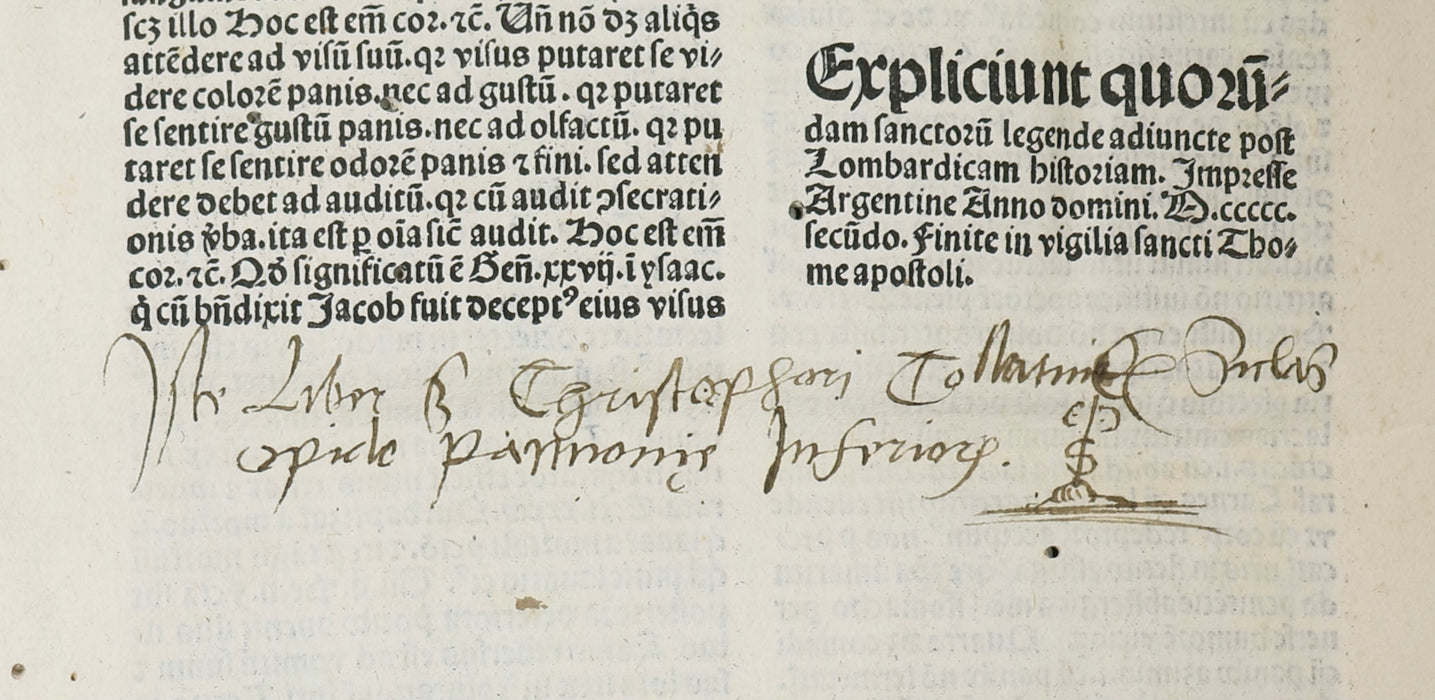 scꝫ illo Hoc est em̄ cor. ⁊c̄. Un̄ nō dꝫ aliq̇s
attēdere ad visū suū. qꝛ visus putaret se vi⸗
dere colorē panis. nec ad gustū. qꝛ putaret
se sentire gustū panis. nec ad olfactū. qꝛ pu
taret se sentire odorē panis ⁊ fini. sed atten
dere debet ad auditū. qꝛ cū audit ↄsecrati⸗
onis v̓ba. ita est ꝑ oīa sic̄ audit. Hoc est em̄
cor. ⁊c̄. Qd̓ significatū ē Gen̄. xxvij. ī ysaac.
q̇ cū bn̄dixit Jacob fuit deceptꝰ eius visus
Expliciunt quorū⸗
dam sanctorū legende adiuncte post
Lombardicam historiam. Impresse
Argentine Anno domini. M.ccccc.
secūdo. Finite in vigilia sancti Tho⸗
me apostoli.
Iste Liber Christophori
opido pannonię Inferiorꝭ.